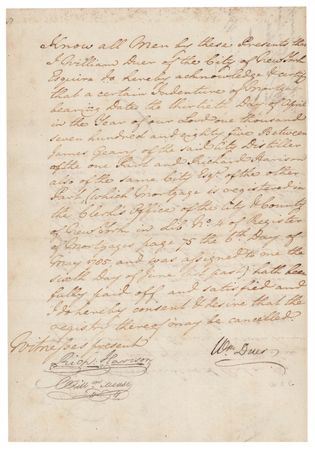 Know all Men by these Presents that
I William Duer of the City of New York
Esquire do hereby acknowledge & certify
that a certain Indenture of Mortgage
bearing Date the thirtieth Day of April
in the Year of our Lord one thousand
seven hundred and eighty five Between
James Geary of the said City Distiller
of the one Part and Richard Harison
also of the same City Esqr. of the other
Part (which Mortgage is registered in
the Clerk's Office of the City & County
of New York in Lib. No. 4 of Register
of Mortgages page 75 the 6th Day of
May 1785 and was assigned to me the
sixth Day of June last past) hath been
fully paid off and satisfied and
I do hereby consent & desire that the
registry thereof may be cancelled.
Witnesses present
Wm. Duer
Richd. Harison